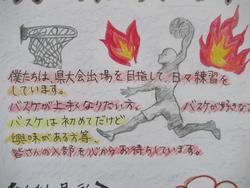 僕たちは、県大会出場を目指して、日々練習を
しています。
バスケが上手くなりたい方、バスケが好きな
バスケは初めてだけど
興味がある方等、
皆さんの入部を心からお待ちしています。